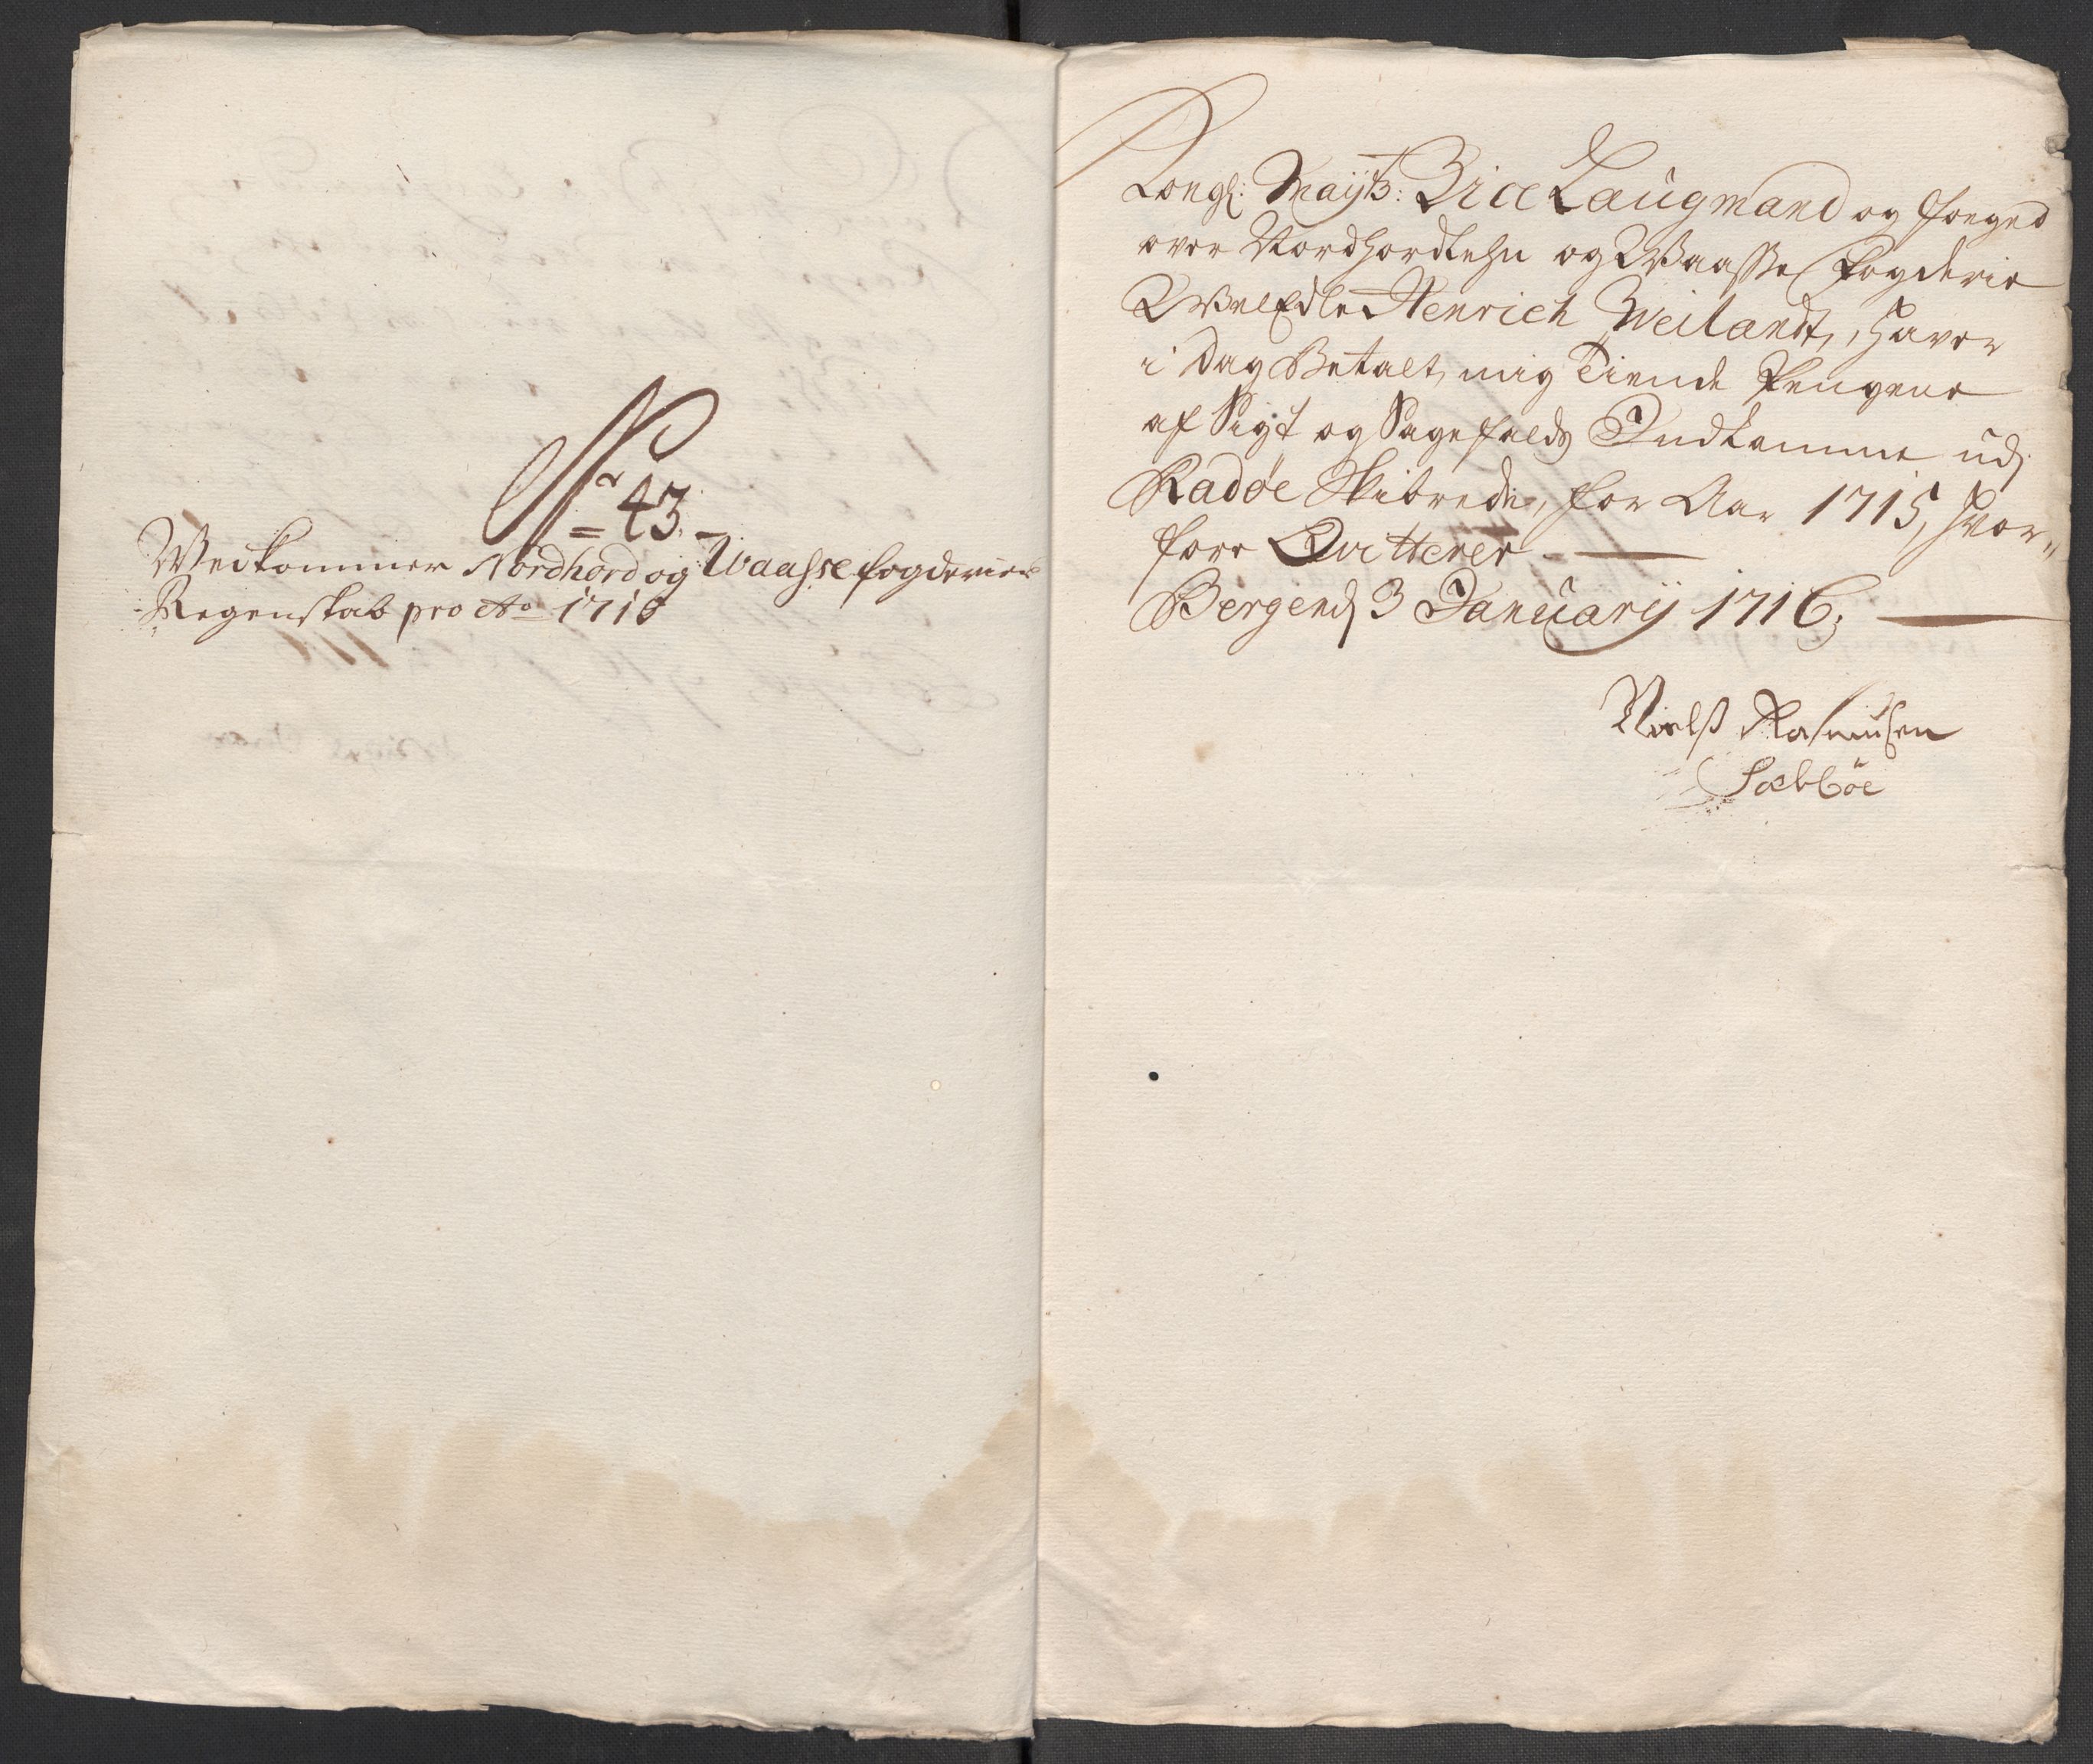 No 43
Vedkommer Nordhord og Waasse fogderiers
Regenskab pro Ao 1715
Kongl: Mayts: Vice Laugmand og foeged
over Nordhordlehn og Waasse Fogderie
WelEdle Henrich Weilandt, haver
i Dag Betalt mig Tiende Pengene
af Sigt og Sagefalds Indkomme udj
Radøe Skibrede, for Aar 1715, hvor-
fore Qvitterer
Bergen d 3 Januarij 1716;
Nielß Rasmusen
Sæbbøe